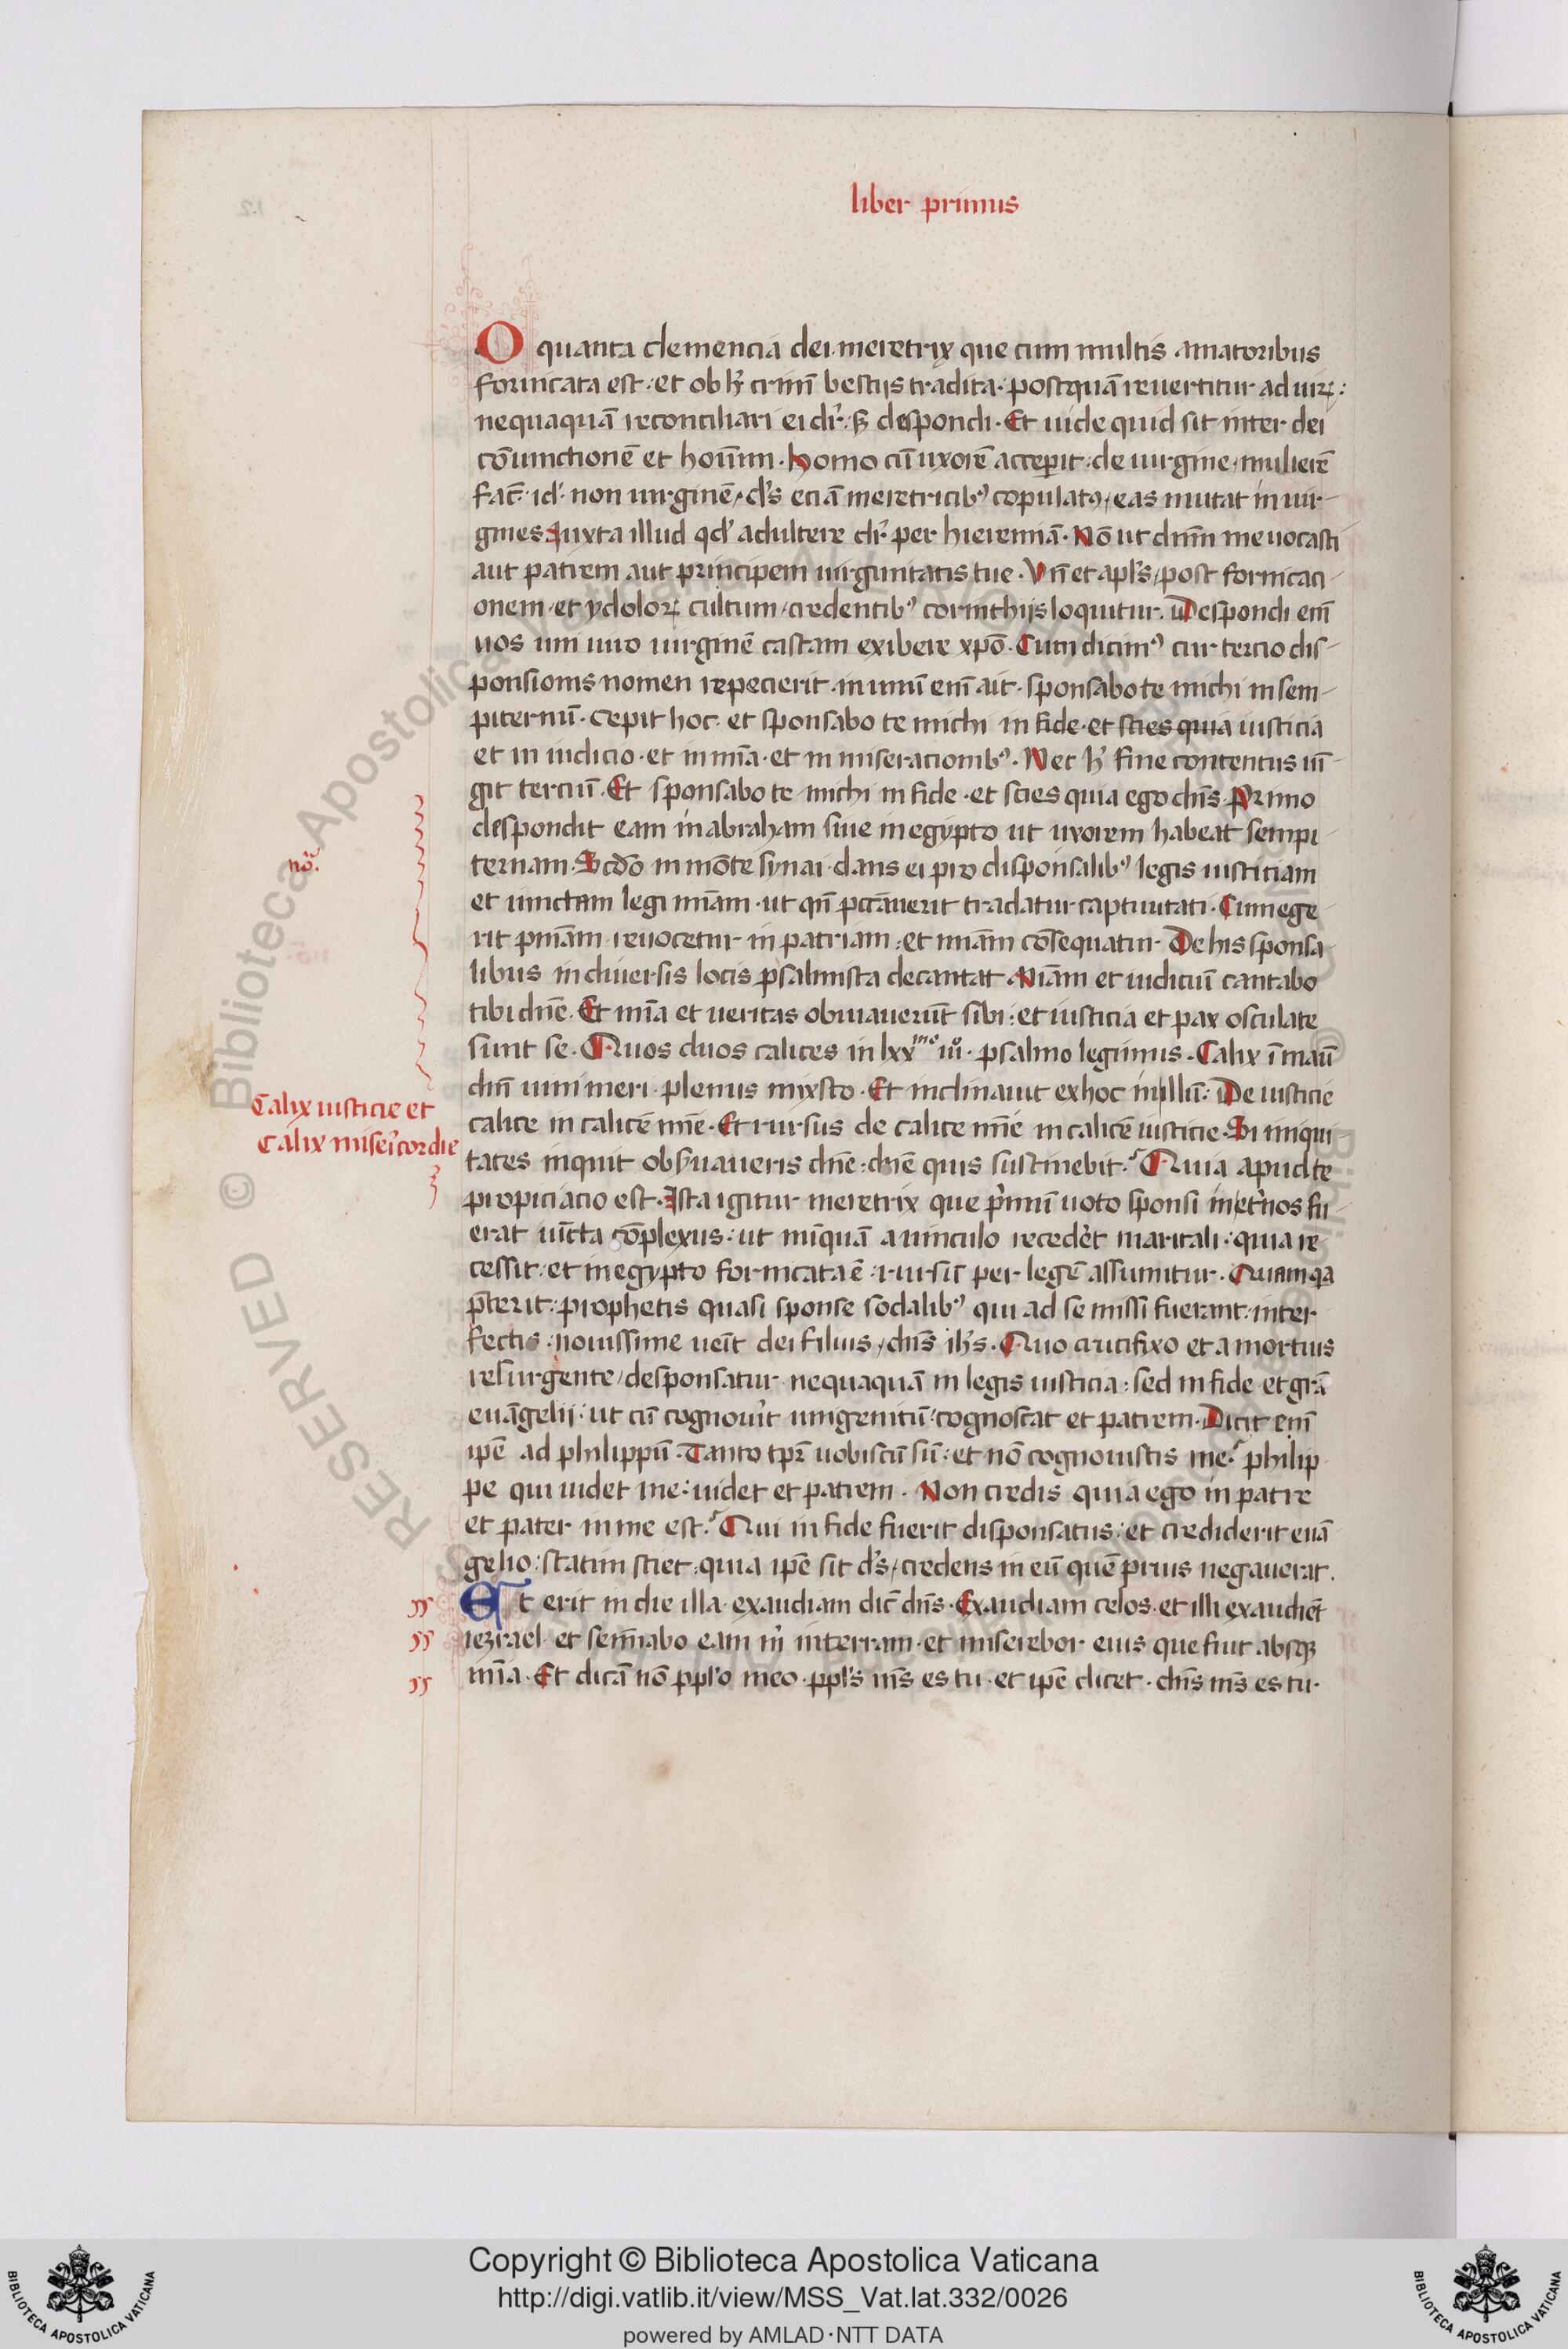 liber primus
O quanta clemencia dei. meretrix que cum multis amatoribus
fornicata est: et ob h' crimī bestijs tradita. postquā reuertitur ad uirꝝ:
nequaquā reconciliari ei dr̄. sꝫ despondi. Et uide quid sit inter dei
cōiunctionē et hoīum. Homo cū uxorē acceperit. de uirgine mulierē
fac̄. id' non uirginē. d's eciā meretricibꝰ copulatꝰ, eas mutat in uir-
gines. Iuxta illud qd' adultere dr̄ per hieremiā. Nō ut dnm̄ me uocasti
aut patrem aut principem uirginitatis tue. Vn̄ et apl's, post fornicaci-
onem, et ydoloꝝ cultum, credentibꝰ corinthijs loquitur. Despondi em̄
uos uni uiro uirginē castam exibere xp̄o. Cum dicimꝰ cur tercio dis-
ponsionis nomen repecierit. in unū em̄ ait. sponsabo te michi in sem-
piternū. cepit hoc. et sponsabo te michi in fide. et scies quia iusticia
et in iudicio. et in mīa. et in miseracionibꝰ. Nec h' fine contentus iū-
git terciū. Et sponsabo te michi in fide. et scies quia ego dn̄s. Primo
despondit eam in abraham siue in egypto ut uxorem habeat sempi-
ternam. Scdo in mōte synai. dans ei pro disponsalibꝰ legis iusticiam
nō.
et iunctam legi mīam. ut qn̄ pccāuerit tradatur captiuitati. Cum ege-
rit pniām. reuocetur in patriam. et mīam cōsequatur. De his sponsa-
libus in diuersis locis psalmista decantat. Mīam et iudiciū cantabo
tibi dnē. Et mīa et ueritas obuiauerūt sibi: et iusticia et pax osculate
sunt se. Quos duos calices in lxx mo iiiio. psalmo legimus. Calix ī manū
dnī uini meri. plenus mixsto. Et inclinauit ex hoc in illū: De iusticie
Calix iusticie et
Calix misericordie
calice in calicē mīe. Et rursus de calice mīe in calicē iusticie. Si iniqui-
tates inquit obs'uaueris dnē: dnē quis sustinebit? Quia apud te
propiciacio est. Ista igitur meretrix que p'mū uoto sponsi in et'nos fu-
erat iūcta cōplexus: ut nūquā a uinculo recedet maritali: quia re-
cessit: et in egypto fornicata ē. rursū per legē assumitur. Quam qa
p̄terit: prophetis quasi sponse sodalibꝰ qui ad se missi fuerant: inter-
fectis: nouissime ueīt dei filius, dn̄s ih's. Quo crucifixo et a mortuis
resurgente, desponsatur nequaquā in legis iusticia: sed in fide et grā
euāgelij: ut cū cognouit unigenitū: cognoscat et patrem. Dicit em̄
ipē ad philippū. Tanto tpr̄ uobiscū sū: et nō cognouistis me? philip-
pe qui uidet me: uidet et patrem. Non credis quia ego in patre
et pater in me est? Qui in fide fuerit disponsatus: et crediderit euā-
gelio: statim sciet: quia ipē sit d's, credens in eū quē prius negauerat.
Et erit in die illa. exaudiam dic̄ dn̄s. Exaudiam celos. et illi exaudiēt
iezrael. et seminabo eam m' in terram. et miserebor eius que fuit absqꝫ
mīa. Et dicā nō ppl'o meo. ppl's m̄s es tu. et ipē dicet. dn̄s m̄s es tu.
Copyright © Biblioteca Apostolica Vaticana
http://digi.vatlib.it/view/MSS_Vat.lat.332/0026
powered by AMLAD·NTT DATA